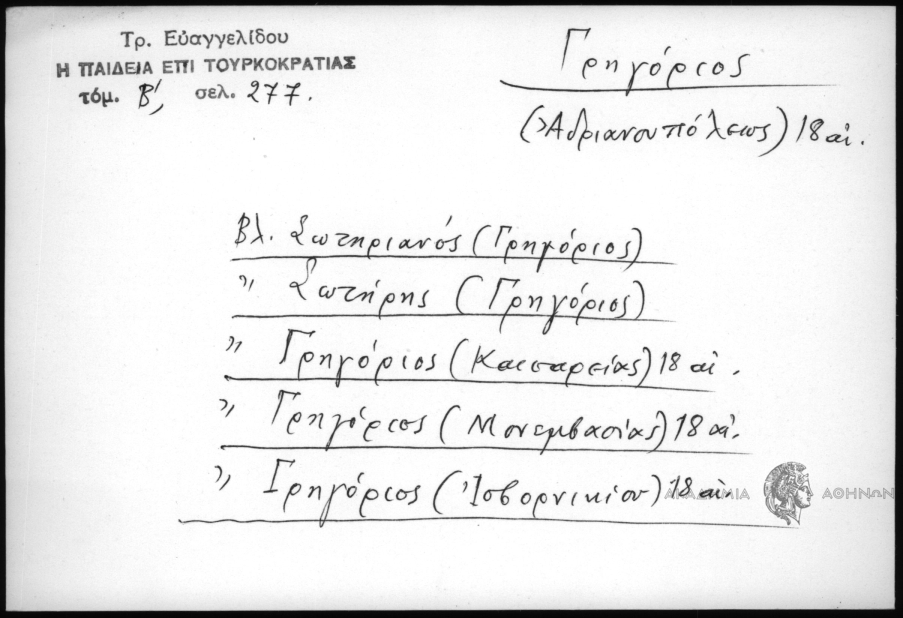 Τρ. Εὐαγγελίδου
Η ΠΑΙΔΕΙΑ ΕΠΙ ΤΟΥΡΚΟΚΡΑΤΙΑΣ
τόμ. Β', σελ. 277.
Γρηγόριος
(Ἀδριανουπόλεως) 18 αἰ.
Βλ. Σωτηριανός (Γρηγόριος)
" Σωτήρης (Γρηγόριος)
" Γρηγόριος (Καισαρείας) 18 αἰ.
" Γρηγόριος (Μονεμβασίας) 18 αἰ.
" Γρηγόριος (Ἰσβορνικίου) 18 αἰ.
ΑΚΑΔΗΜΙΑ ΑΘΗΝΩΝ